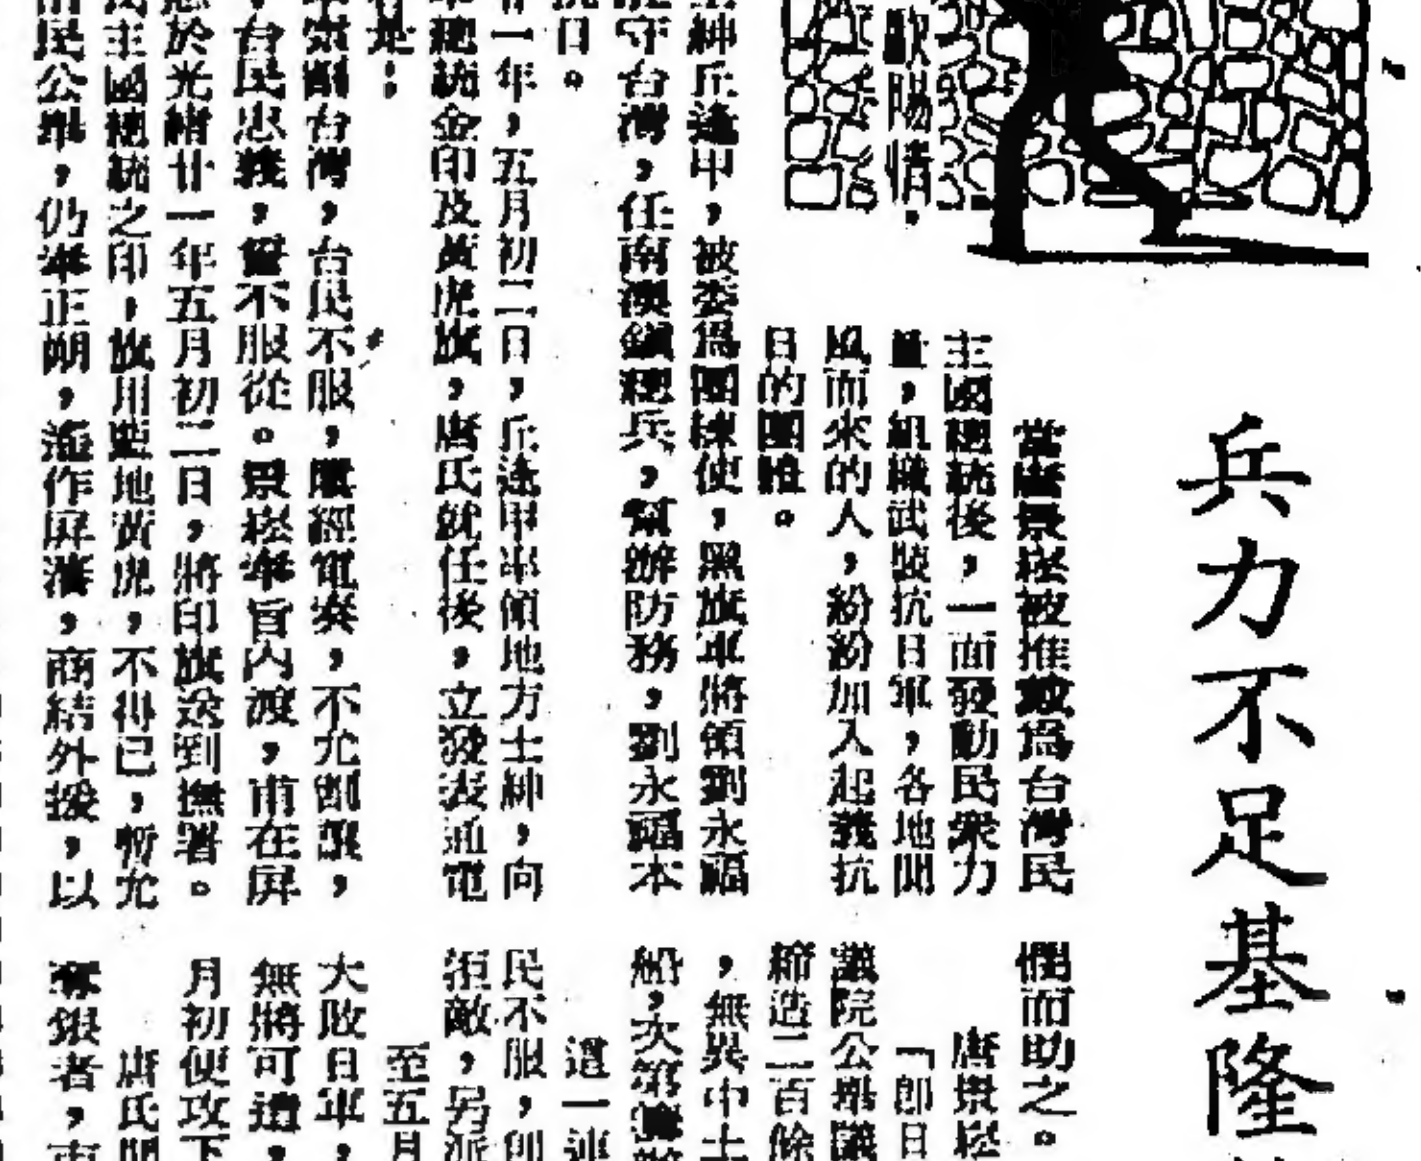 兵力不足基隆
歐陽情·
當唐景崧被推戴為台灣民
主國總統後，一面發動民衆力
量，組織武裝抗日軍，各地聞
風而來的人，紛紛加入起義抗
日的團體。
紳丘逢甲，被委為團練使，黑旗軍將領劉永福
守台灣，任南澳鎮總兵，幫辦防務，劉永福本
抗日。
一年，五月初二日，丘逢甲率領地方士紳，向
總統金印及黃虎旗，唐氏就任後，立發表通電
是：
割台灣，台民不服，屢經電奏，不允割讓，
台民忠義，誓不服從。景崧奉旨內渡，甫在屏
於光緒廿一年五月初二日，將印旗送到撫署。
主國總統之印，旗用藍地黃虎，不得已，暫允
民公舉，仍奉正朔，遙作屏藩，商結外援，以
而助之。
唐景崧
「即日
議院公舉議
締造二百餘
，無異中土
船，次第籌辦
這一連
民不服，
拒敵，另派
至五月
大敗日軍，
無將可遣，
月初便攻下
唐氏聞
奪銀者，